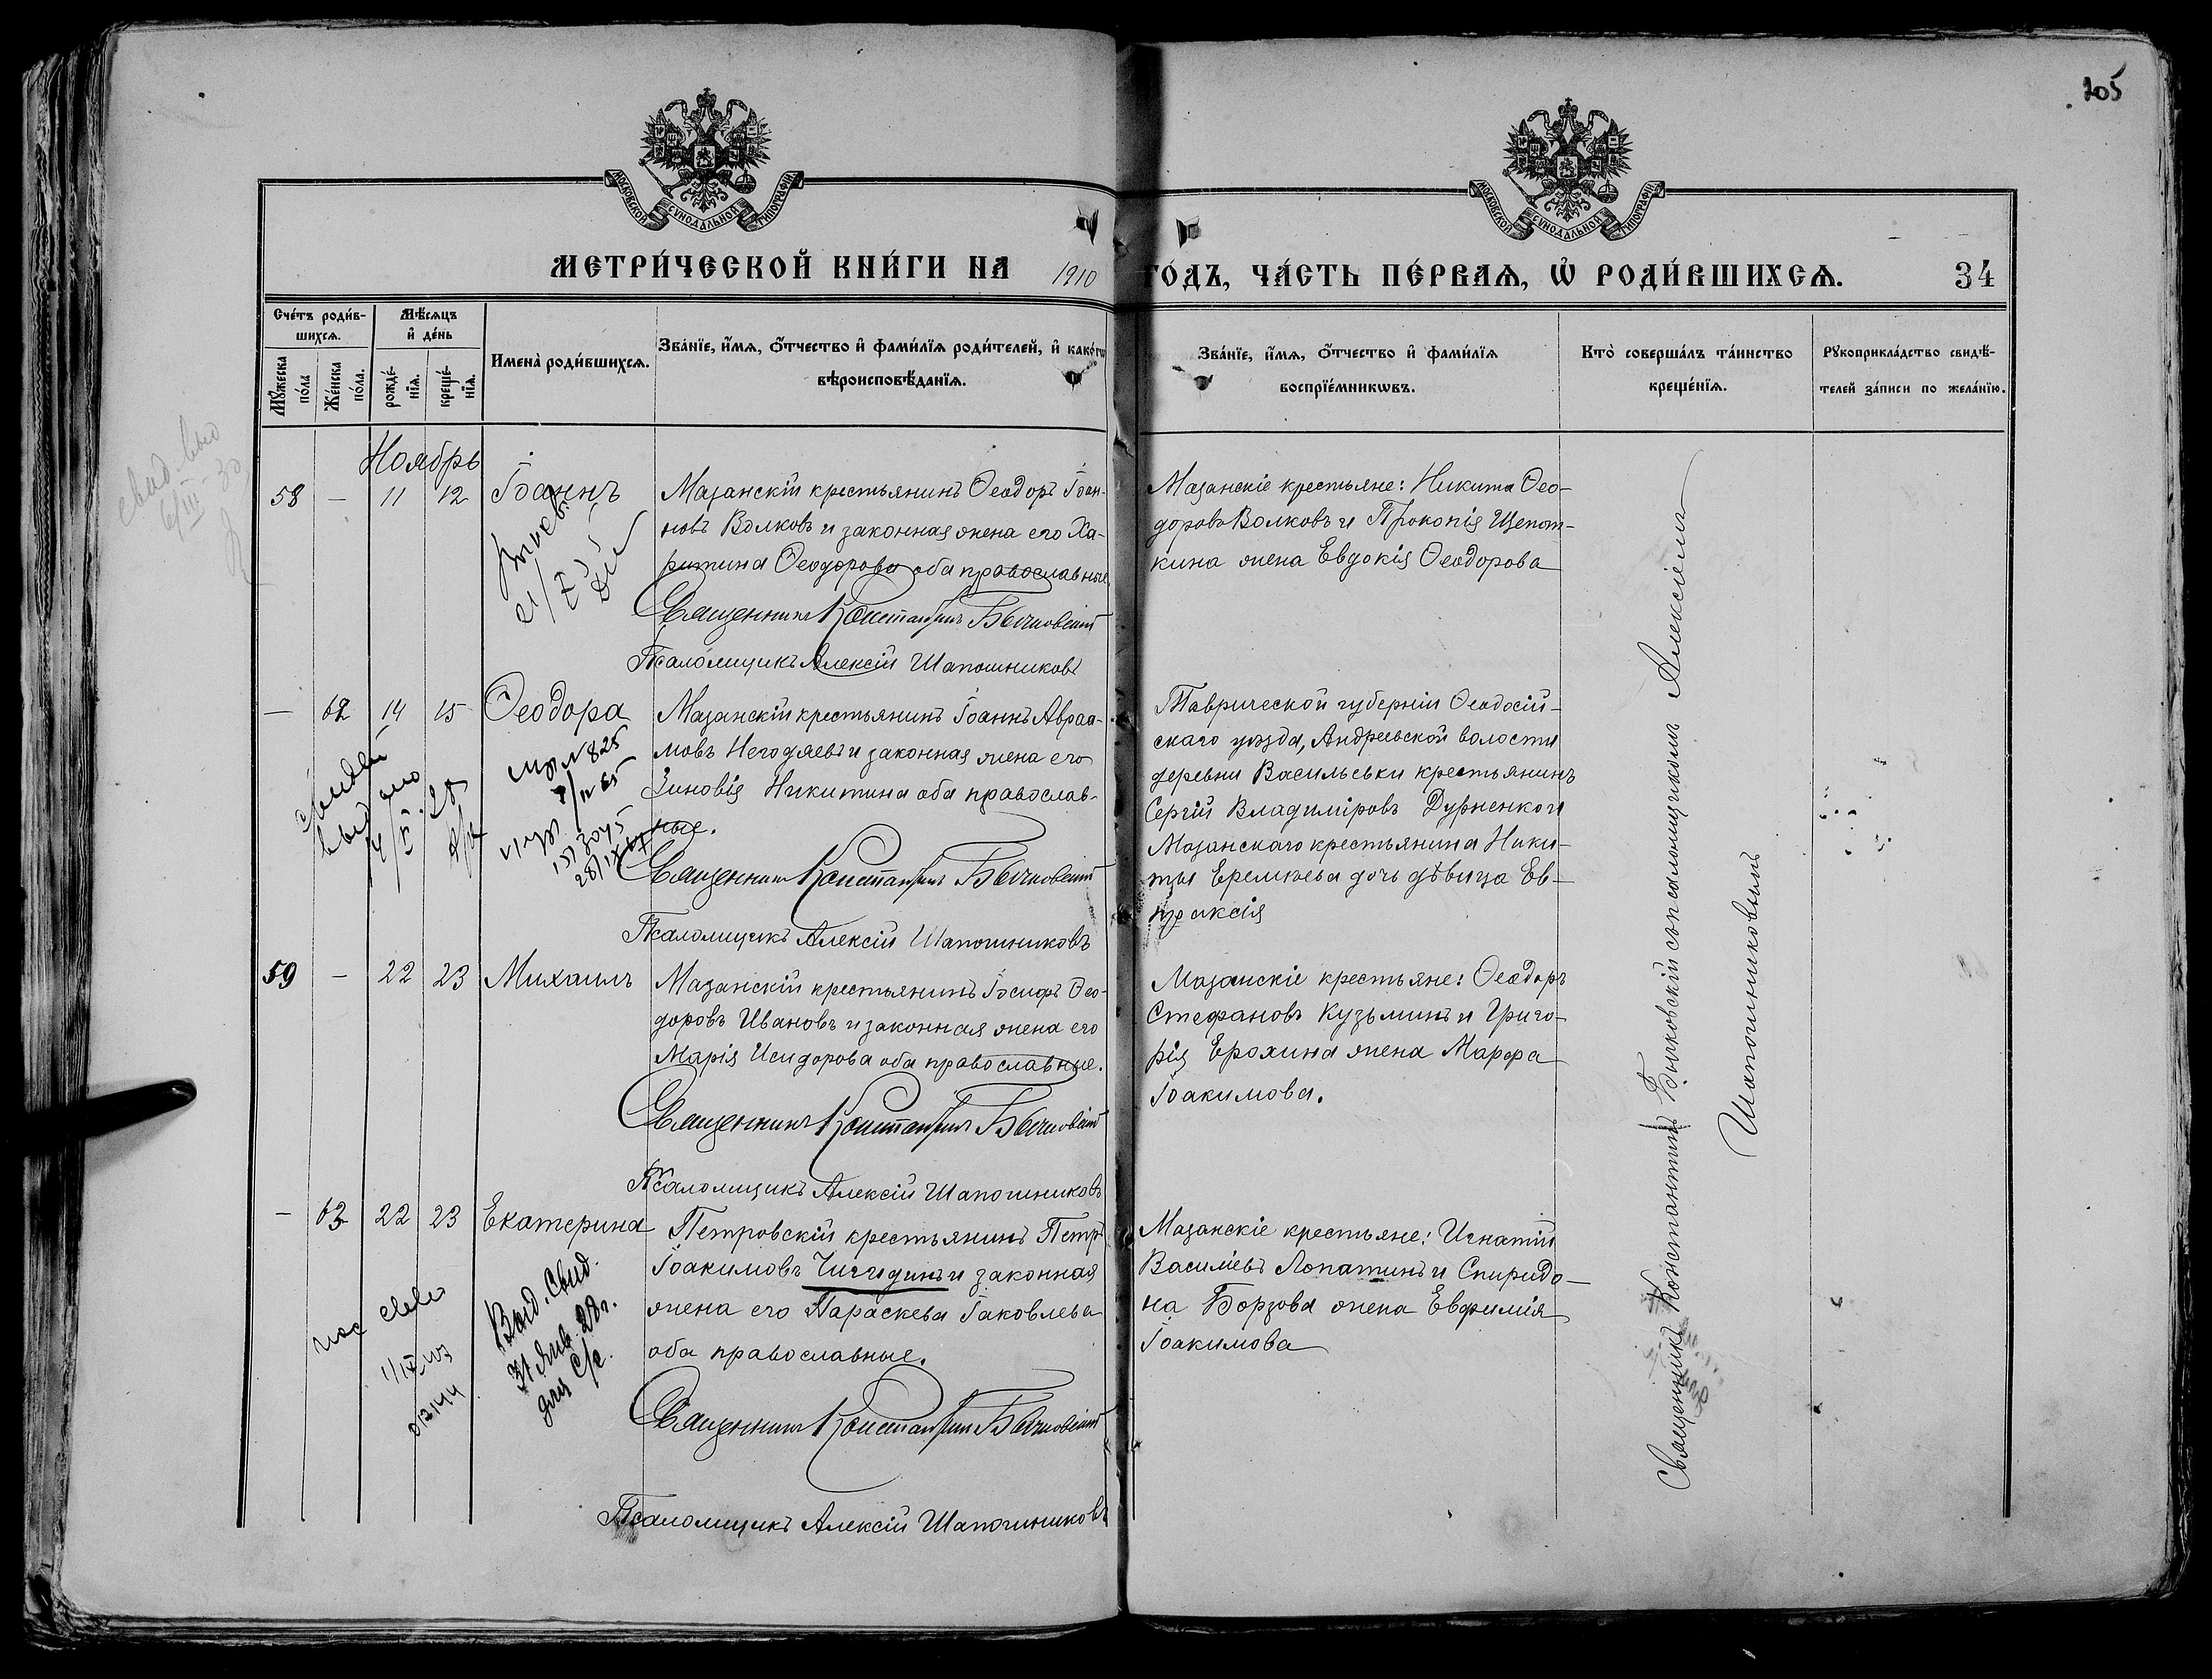 205
МОСКОВСКОЙ СѴНОДАЛЬНОЙ ТИПОГРАФІИ
МОСКОВСКОЙ СѴНОДАЛЬНОЙ ТИПОГРАФІИ
МЕТРИ́ЧЕСКОЙ КНИ́ГИ НА 1910 ГО́ДЪ, ЧА́СТЬ ПЕ́РВАѦ, Ѡ҆ РОДИ́ВШИХСѦ. 34
Сче́тъ роди́в-
шихсѧ.
Мꙋ́жеска по́ла
Же́нска по́ла.
Мѣ́сѧцъ и҆ де́нь
рожде́-нїѧ.
креще́-нїѧ.
Имена̀ роди́вшихсѧ.
Зва́нїе, и҆́мѧ, ѻ҆́тчество и҆ фами́лїѧ роди́телей, и҆ како́гѡ
вѣроисповѣ́данїѧ.
Зва́нїе, и҆́мѧ, ѻ҆́тчество и҆ фами́лїѧ
воспрїе́мникѡвъ.
Кто̀ соверша́лъ та́инство
креще́нїѧ.
Рꙋкоприкла́дство свидѣ́-
телей за́писи по жела́нїю.
Ноябрь
58 — 11 12 Іоаннъ
Мазанскій крестьянинъ Ѳеодоръ Іоан-
новъ Волковъ и законная жена его Ха-
ритина Ѳеодорова оба православные
Священникъ Константинъ Бычковскій
Псаломщикъ Алексій Шапошниковъ
Мазанскіе крестьяне: Никита Ѳео-
доровъ Волковъ и Прокопія Щепот-
кина жена Евдокія Ѳеодорова
— 62 14 15 Ѳеодора
№ 825
Мазанскій крестьянинъ Іоаннъ Авраа-
мовъ Негодяевъ и законная жена его
Зиновія Никитина оба православ-
ные.
Священникъ Константинъ Бычковскій
Псаломщикъ Алексій Шапошниковъ
Таврической губерніи Ѳеодосій-
скаго уѣзда, Андреевской волости
деревни Васильевки крестьянинъ
Сергій Владиміровъ Дурненко и
Мазанскаго крестьянина Ники-
ты Еремѣева дочь дѣвица Ев-
праксія
59 — 22 23 Михаилъ
Мазанскій крестьянинъ Іосифъ Ѳео-
доровъ Ивановъ и законная жена его
Марія Исидорова оба православные.
Священникъ Константинъ Бычковскій
Псаломщикъ Алексій Шапошниковъ
Мазанскіе крестьяне: Ѳеодоръ
Стефановъ Кузьминъ и Григо-
рія Ерохина жена Марфа
Іоакимова.
— 63 22 23 Екатерина
Выд. Свид.
31 Янв. 28 г.
для с/с.
Петровскій крестьянинъ Петръ
Іоакимовъ Чигидинъ и законная
жена его Параскева Іаковлева
оба православные.
Священникъ Константинъ Бычковскій
Псаломщикъ Алексій Шапошниковъ
Мазанскіе крестьяне: Игнатій
Василіевъ Лопатинъ и Спиридо-
на Борзова жена Евфимія
Іоакимова
Священникъ Константинъ Бычковскій съ псаломщикомъ Алексіемъ
Шапошниковымъ